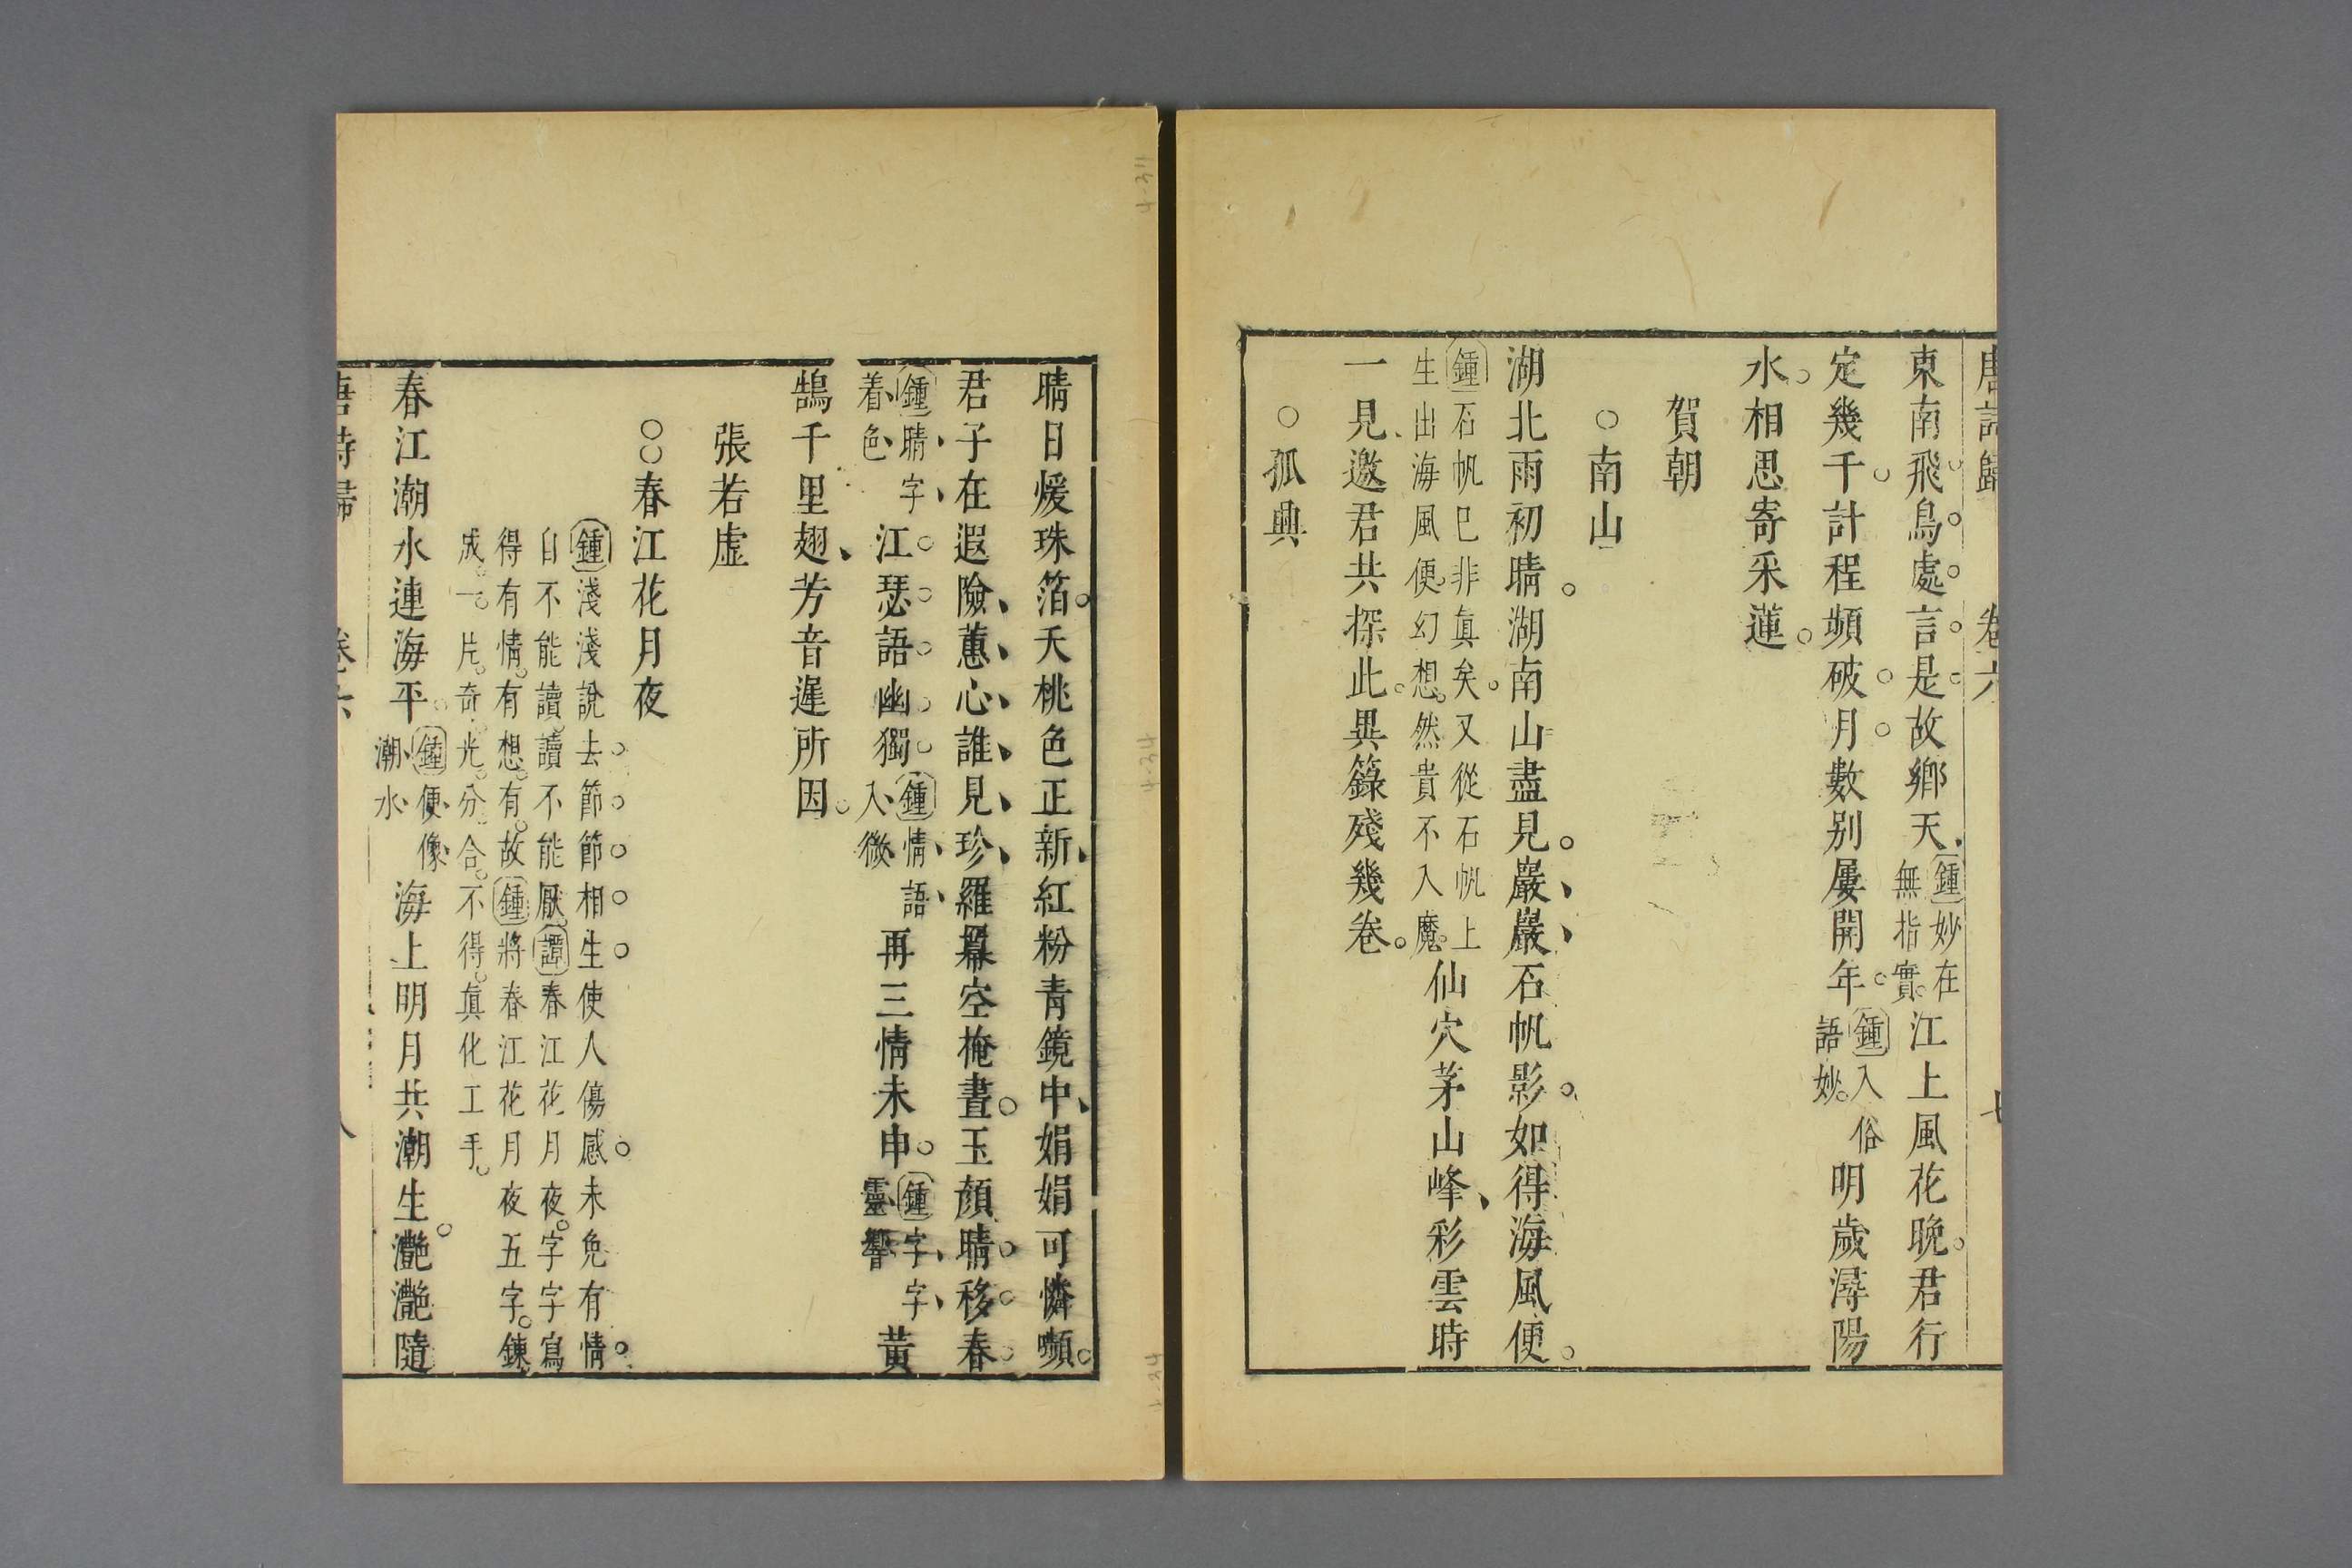 唐詩歸 卷六 七
東南飛鳥處言是故鄉天鍾妙在無指實江上風花晚君行
定幾千計程頻破月數別屢開年鍾入俗語妙明歲潯陽
水相思寄采蓮
賀朝
○南山
湖北雨初晴湖南山盡見巖巖石帆影如得海風便
鍾石帆已非真矣又從石帆上生出海風便幻想然貴不入魔仙穴茅山峰彩雲時
一見邀君共探此異籙殘幾卷
○孤興
晴日煖珠箔夭桃色正新紅粉青鏡中娟娟可憐嚬
君子在遐險蕙心誰見珍羅幕空掩晝玉顏晴移春
鍾晴字着色江瑟語幽獨鍾情語入微再三情未申鍾字字靈響黃
鵠千里翅芳音遲所因
張若虛
○○春江花月夜
鍾淺淺說去節節相生使人傷感未免有情
自不能讀讀不能厭譚春江花月夜字字寫
得有情有想有故鍾將春江花月夜五字鍊
成一片奇光分合不得真化工手
春江潮水連海平鍾便像潮水海上明月共潮生灩灩隨
唐詩歸 卷六 八